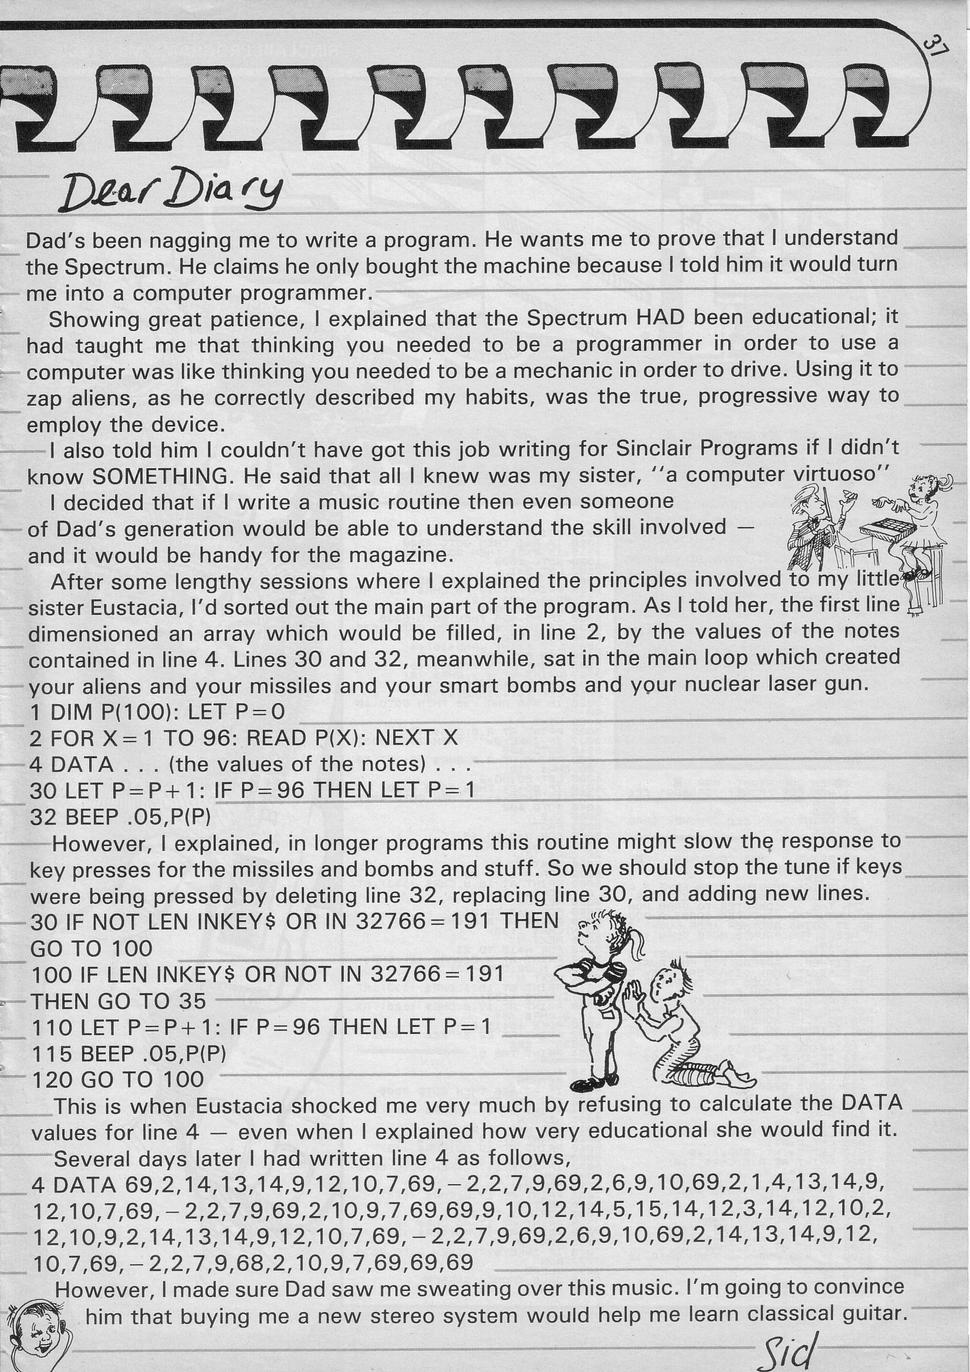 37
Dear Diary
Dad's been nagging me to write a program. He wants me to prove that I understand
the Spectrum. He claims he only bought the machine because I told him it would turn
me into a computer programmer.
Showing great patience, I explained that the Spectrum HAD been educational; it
had taught me that thinking you needed to be a programmer in order to use a
computer was like thinking you needed to be a mechanic in order to drive. Using it to
zap aliens, as he correctly described my habits, was the true, progressive way to
employ the device.
I also told him I couldn't have got this job writing for Sinclair Programs if I didn't
know SOMETHING. He said that all I knew was my sister, "a computer virtuoso"
I decided that if I write a music routine then even someone
of Dad's generation would be able to understand the skill involved —
and it would be handy for the magazine.
After some lengthy sessions where I explained the principles involved to my little
sister Eustacia, I'd sorted out the main part of the program. As I told her, the first line
dimensioned an array which would be filled, in line 2, by the values of the notes
contained in line 4. Lines 30 and 32, meanwhile, sat in the main loop which created
your aliens and your missiles and your smart bombs and your nuclear laser gun.
1 DIM P(100): LET P=0
2 FOR X=1 TO 96: READ P(X): NEXT X
4 DATA . . . (the values of the notes) . . .
30 LET P=P+1: IF P=96 THEN LET P=1
32 BEEP .05,P(P)
However, I explained, in longer programs this routine might slow the response to
key presses for the missiles and bombs and stuff. So we should stop the tune if keys
were being pressed by deleting line 32, replacing line 30, and adding new lines.
30 IF NOT LEN INKEY$ OR IN 32766=191 THEN
GO TO 100
100 IF LEN INKEY$ OR NOT IN 32766=191
THEN GO TO 35
110 LET P=P+1: IF P=96 THEN LET P=1
115 BEEP .05,P(P)
120 GO TO 100
This is when Eustacia shocked me very much by refusing to calculate the DATA
values for line 4 — even when I explained how very educational she would find it.
Several days later I had written line 4 as follows,
4 DATA 69,2,14,13,14,9,12,10,7,69,−2,2,7,9,69,2,6,9,10,69,2,1,4,13,14,9,
12,10,7,69,−2,2,7,9,69,2,10,9,7,69,69,9,10,12,14,5,15,14,12,3,14,12,10,2,
12,10,9,2,14,13,14,9,12,10,7,69,−2,2,7,9,69,2,6,9,10,69,2,14,13,14,9,12,
10,7,69,−2,2,7,9,68,2,10,9,7,69,69,69
However, I made sure Dad saw me sweating over this music. I'm going to convince
him that buying me a new stereo system would help me learn classical guitar.
Sid